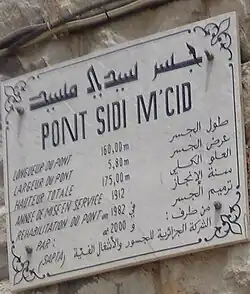 جسر سيدي مسيد
PONT SIDI M'CID
LONGUEUR DU PONT 160,00m طول الجسر
LARGEUR DU PONT 5,80m عرض الجسر
HAUTEUR TOTALE 175,00m العلو الكلي
ANNEE DE MISE EN SERVICE 1912 سنة الإنجاز
REHABILITATION DU PONT en 1982 في ترميم الجسر
PAR : et 2000 و من طرف :
(SAPTA) الشركة الجزائرية للجسور والأشغال الفنية